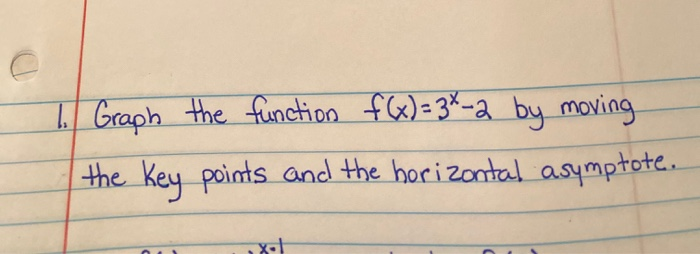 1. Graph the function f(x)=3ˣ-2 by moving
the key points and the horizontal asymptote.